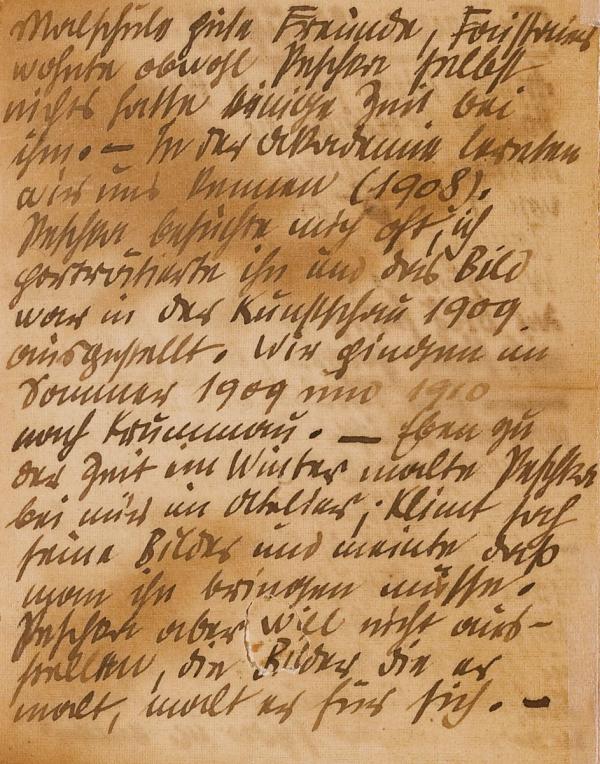 Malschule gute Freunde, Faistauer
wohnte obwohl Peschka selbst
nichts hatte einige Zeit bei
ihm. — In der Akademie lernten
wir uns kennen (1908).
Peschka besuchte mich oft, ich
porträtierte ihn und das Bild
war in der Kunstschau 1909
ausgestellt. Wir gingen im
Sommer 1909 und 1910
nach Krummau. — Eben zu
der Zeit im Winter malte Peschka
bei mir im Atelier; Klimt sah
seine Bilder und meinte daß
man ihn bringen müsse.
Peschka aber will nicht aus-
stellen, die Bilder die er
malt, malt er für sich. —